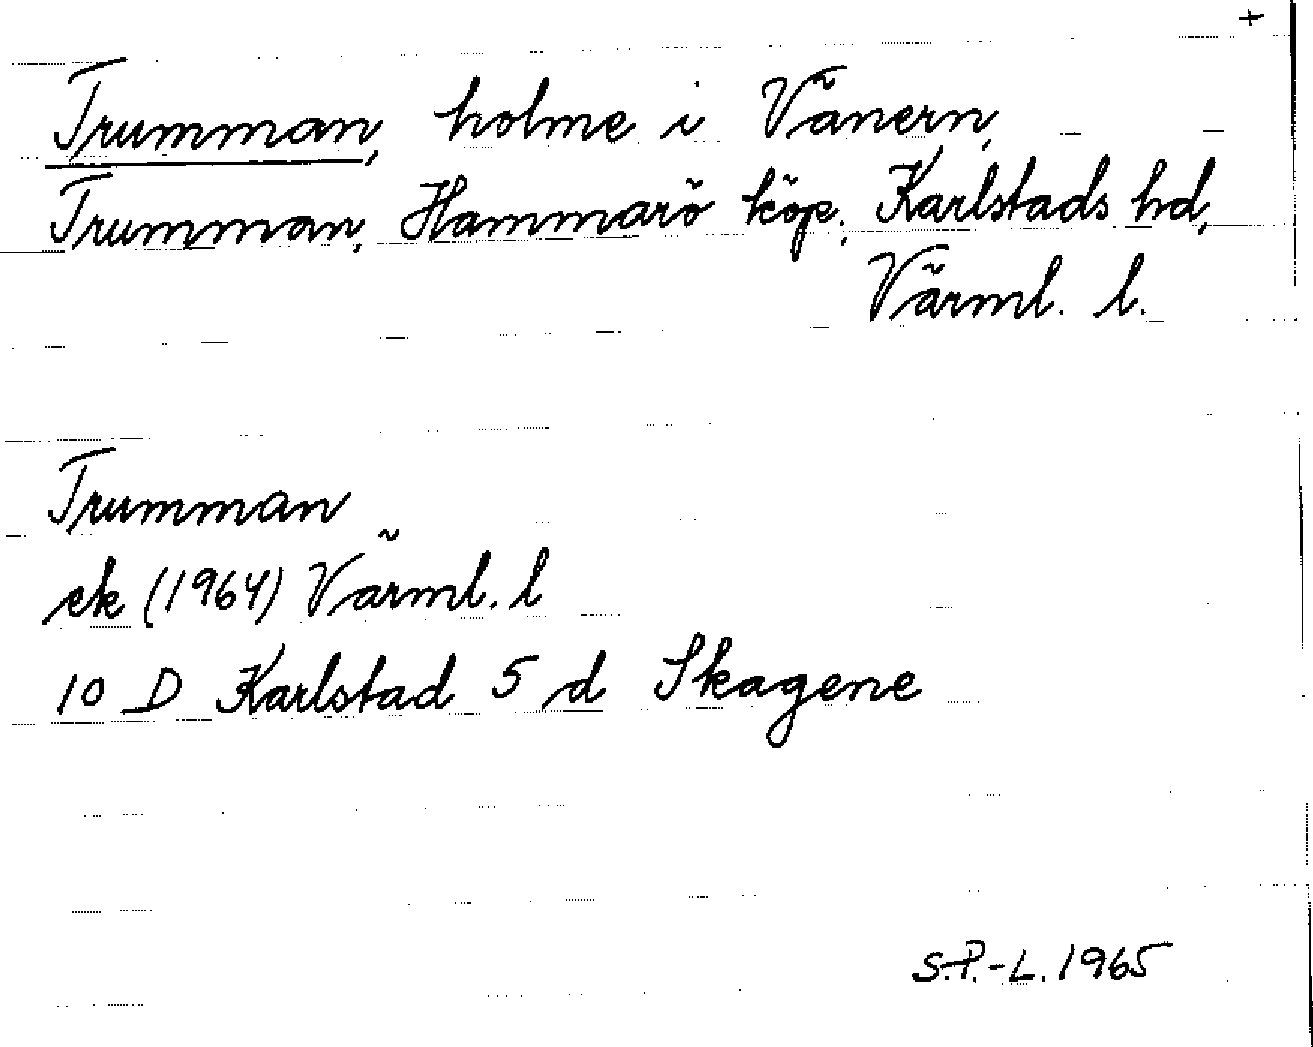 +
Trumman, holme i Vänern,
Trumman, Hammarö köp., Karlstads hd,
Värml. l.
Trumman
ek (1964) Värml. l
10 D Karlstad 5 d Skagene
S.P.-L. 1965